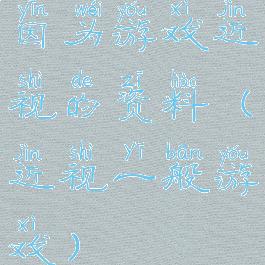 yīn wéi yóu xì jìn
因为游戏近
shì de zī liào
视的资料（
jìn shì yī bān yóu
近视一般游
xì
戏）